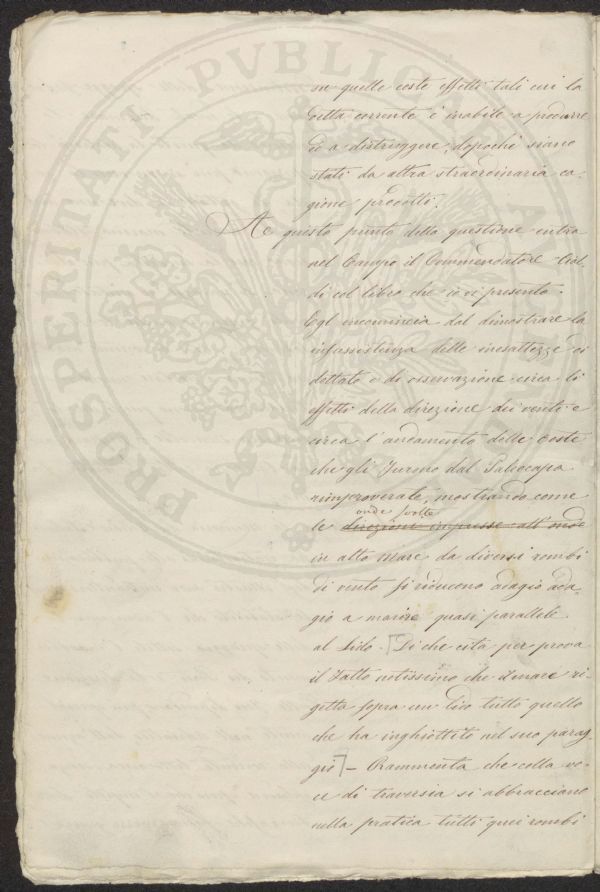 PROSPERITATI PVBLICAE AVGENDAE
in quelle coste effetti tali cui la
detta corrente è inabile a produrre
ed a distruggere, dopochè siano
stati da altra straordinaria ca-
gione prodotti.
A questo punto della questione entra
nel Campo il Commendatore Cial-
di col libro che io vi presento.
Egli incomincia dal dimostrare la
insussistenza delle inesattezze di
dettato e di osservazione circa li
effetti della direzione dei venti e
circa l'andamento delle coste
che gli furono dal Paleocapa
rimproverate, mostrando come
onde svolte
le direzione impresse all'onde
in alto mare da diversi rombi
di vento si riducono adagio ada-
gio a marire quasi parallele
al Lido. [Di che cita per prova
il fatto notissimo che il mare ri-
getta sopra un lido tutto quello
che ha inghiottito nel suo parag-
gio] – Rammenta che colla vo-
ce di traversia si abbracciano
nella pratica tutti quei rombi